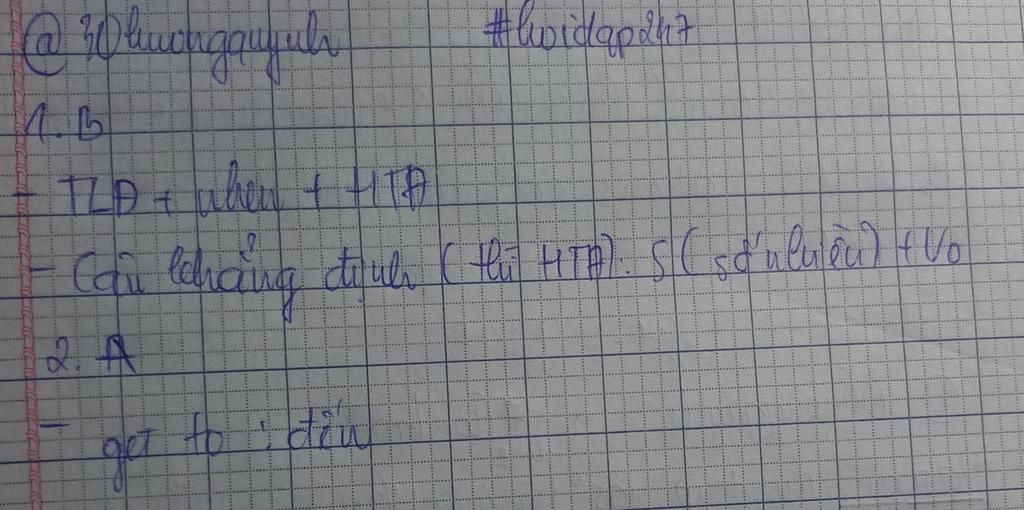 @30huongquynh #hoidap247
1. B
- TLĐ + when + HTĐ
- Câu khẳng định (thì HTĐ): S (số nhiều) + Vo
2. A
- get to : đến